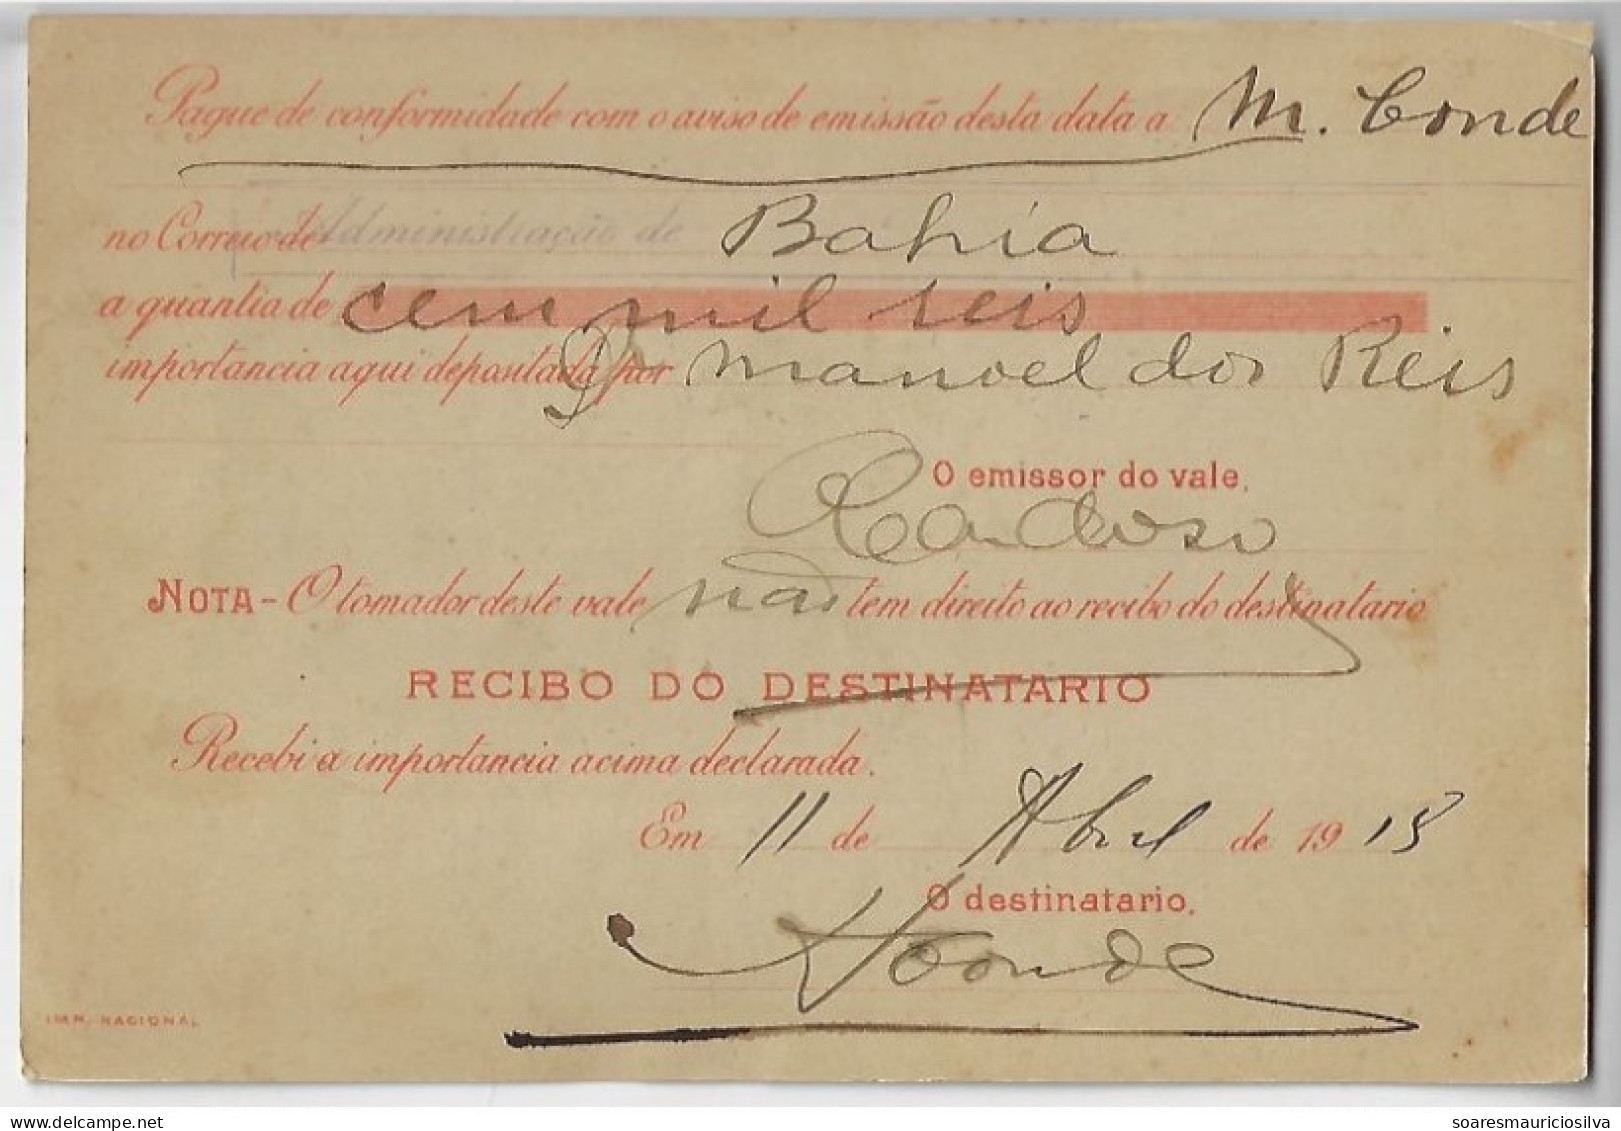 Pague de conformidade com o aviso de emissão desta data a M. Conde
no Correio de Administração de Bahia
a quantia de cem mil reis
importancia aqui depositada por Dr Manoel dos Reis
O emissor do vale.
Cardoso
NOTA - O tomador deste vale não tem direito ao recibo do destinatario
RECIBO DO DESTINATARIO
Recebi a importancia acima declarada.
Em 11 de Abril de 19 18
O destinatario,
Conde
IMP. NACIONAL
soaresmauriciosilva